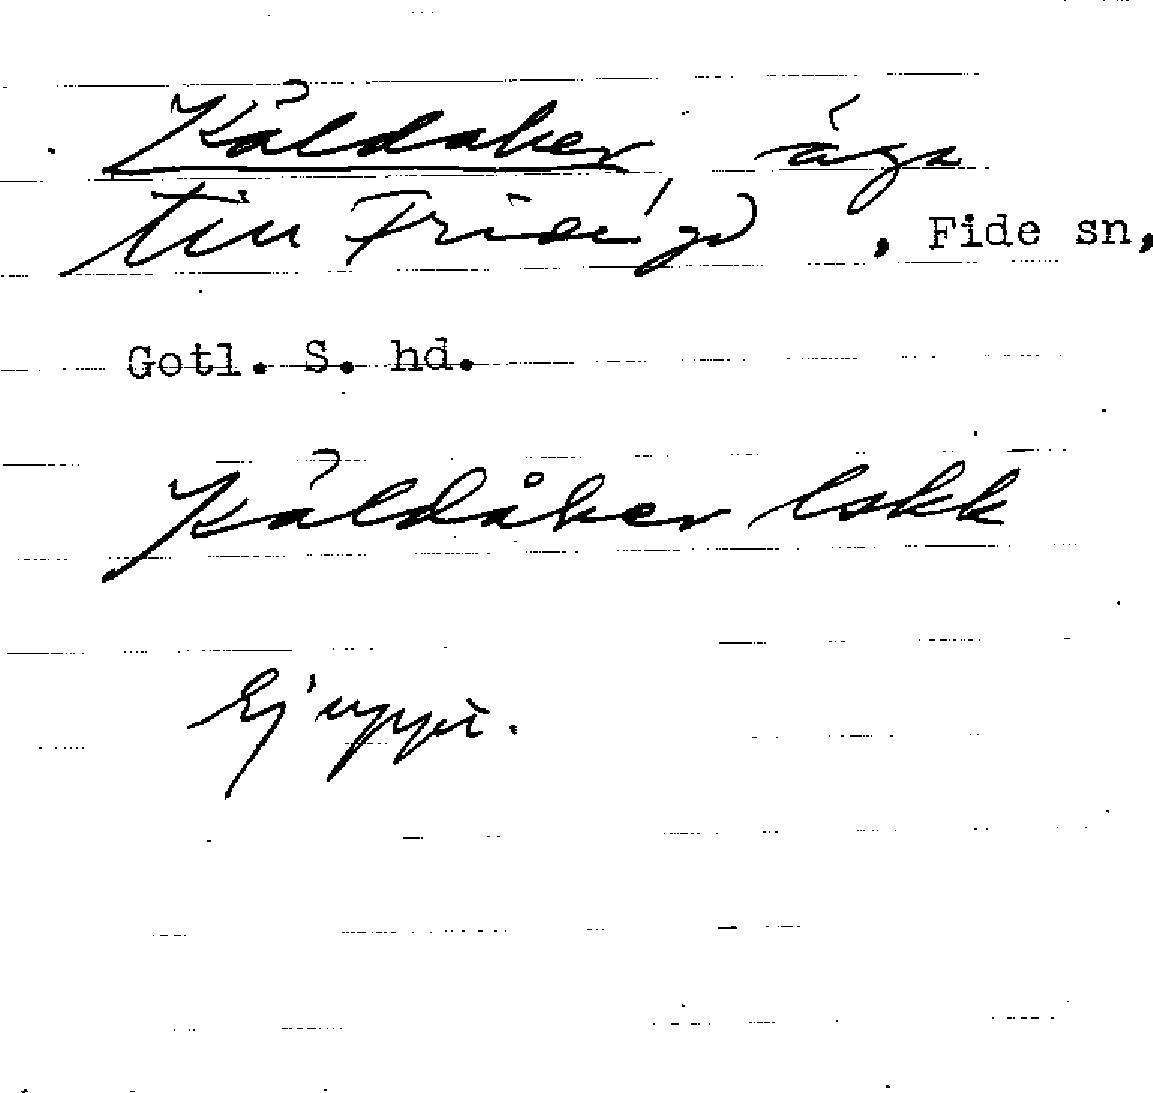 Kåldaker, äga
till Fridegs, Fide sn,
Gotl. S. hd.
Kåldåker Lskk
Ej uppt.